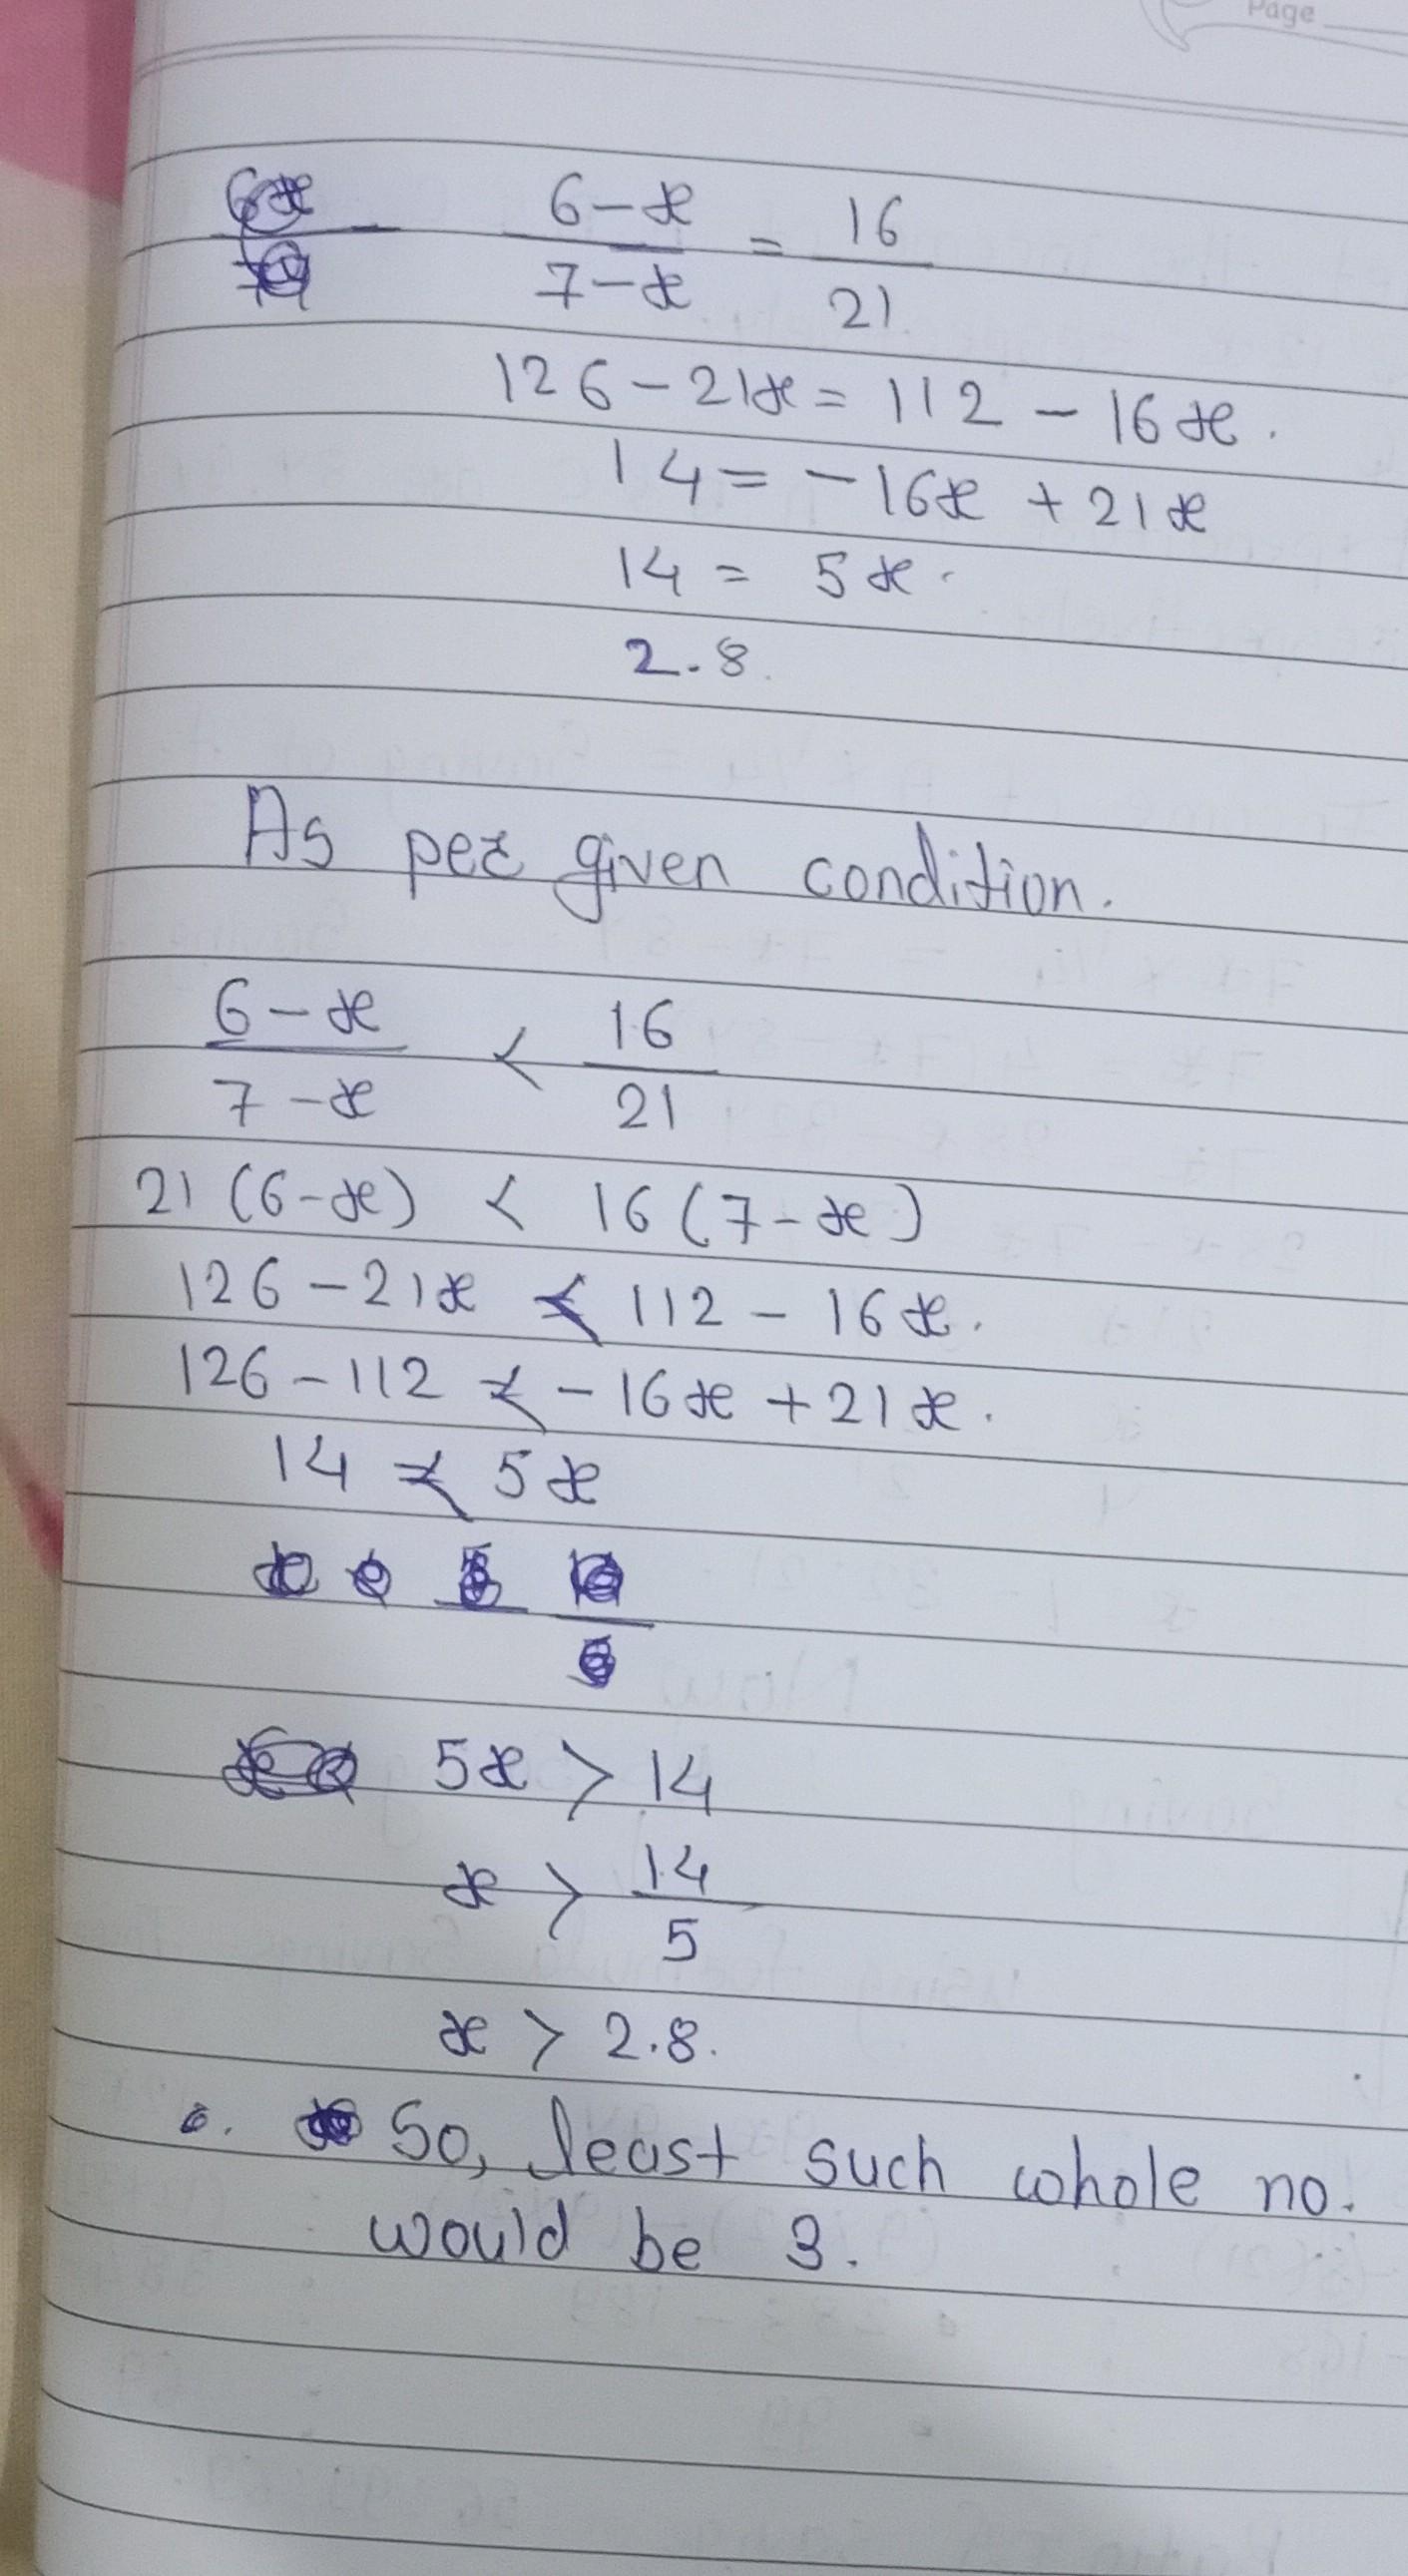 Page
6-x/7-x = 16/21
126-21x = 112 - 16x.
14 = -16x + 21x
14 = 5x.
2.8.
As per given condition.
6-x/7-x < 16/21
21(6-x) < 16(7-x)
126-21x < 112 - 16x.
126-112 < -16x + 21x.
14 < 5x
5x > 14
x > 14/5
x > 2.8.
So, least such whole no.
would be 3.